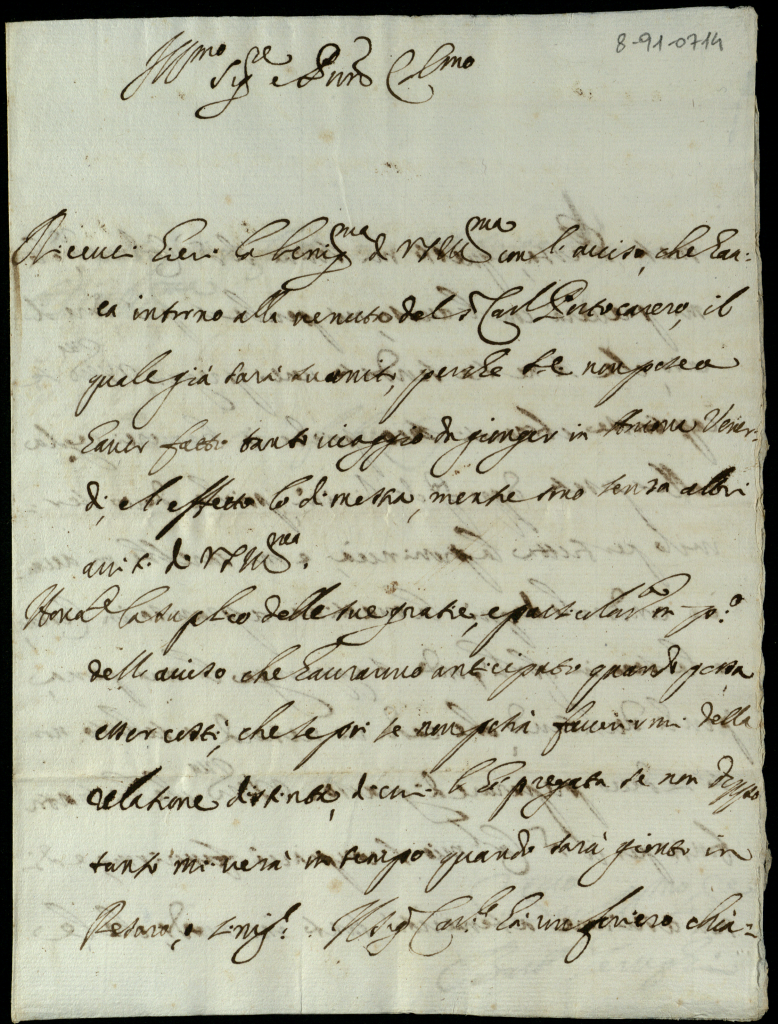 8-91-0714
Ill.mo
Sig.re e Pne Col.mo
Riceuei hieri la benig.ma di V.S. Ill.ma con l'auiso, che hau=
ea intorno alla uenuta del s.r Card.l Portocarero, il
quale già sarà suanito, perche se non potea
hauer fatto tanto uiaggio di gionger in Ancona Vener=
dì, e l'effetto lo dimostra, mentre sono senza altri
auisi di V.S. Ill.ma.
Hora la suplico delle sue gratie, e particolar.te in p.o
dell'auiso che hauranno anticipato quando possa
esser costì, che se poi se non potrà fauorirmi della
relatione distinta, di cui la ho pregata se non doppo
tanto mi uerà in tempo quando sarà gionto in
Pesaro, e Sinig.a. Il Sig.r Car.le ha un foriero chia=